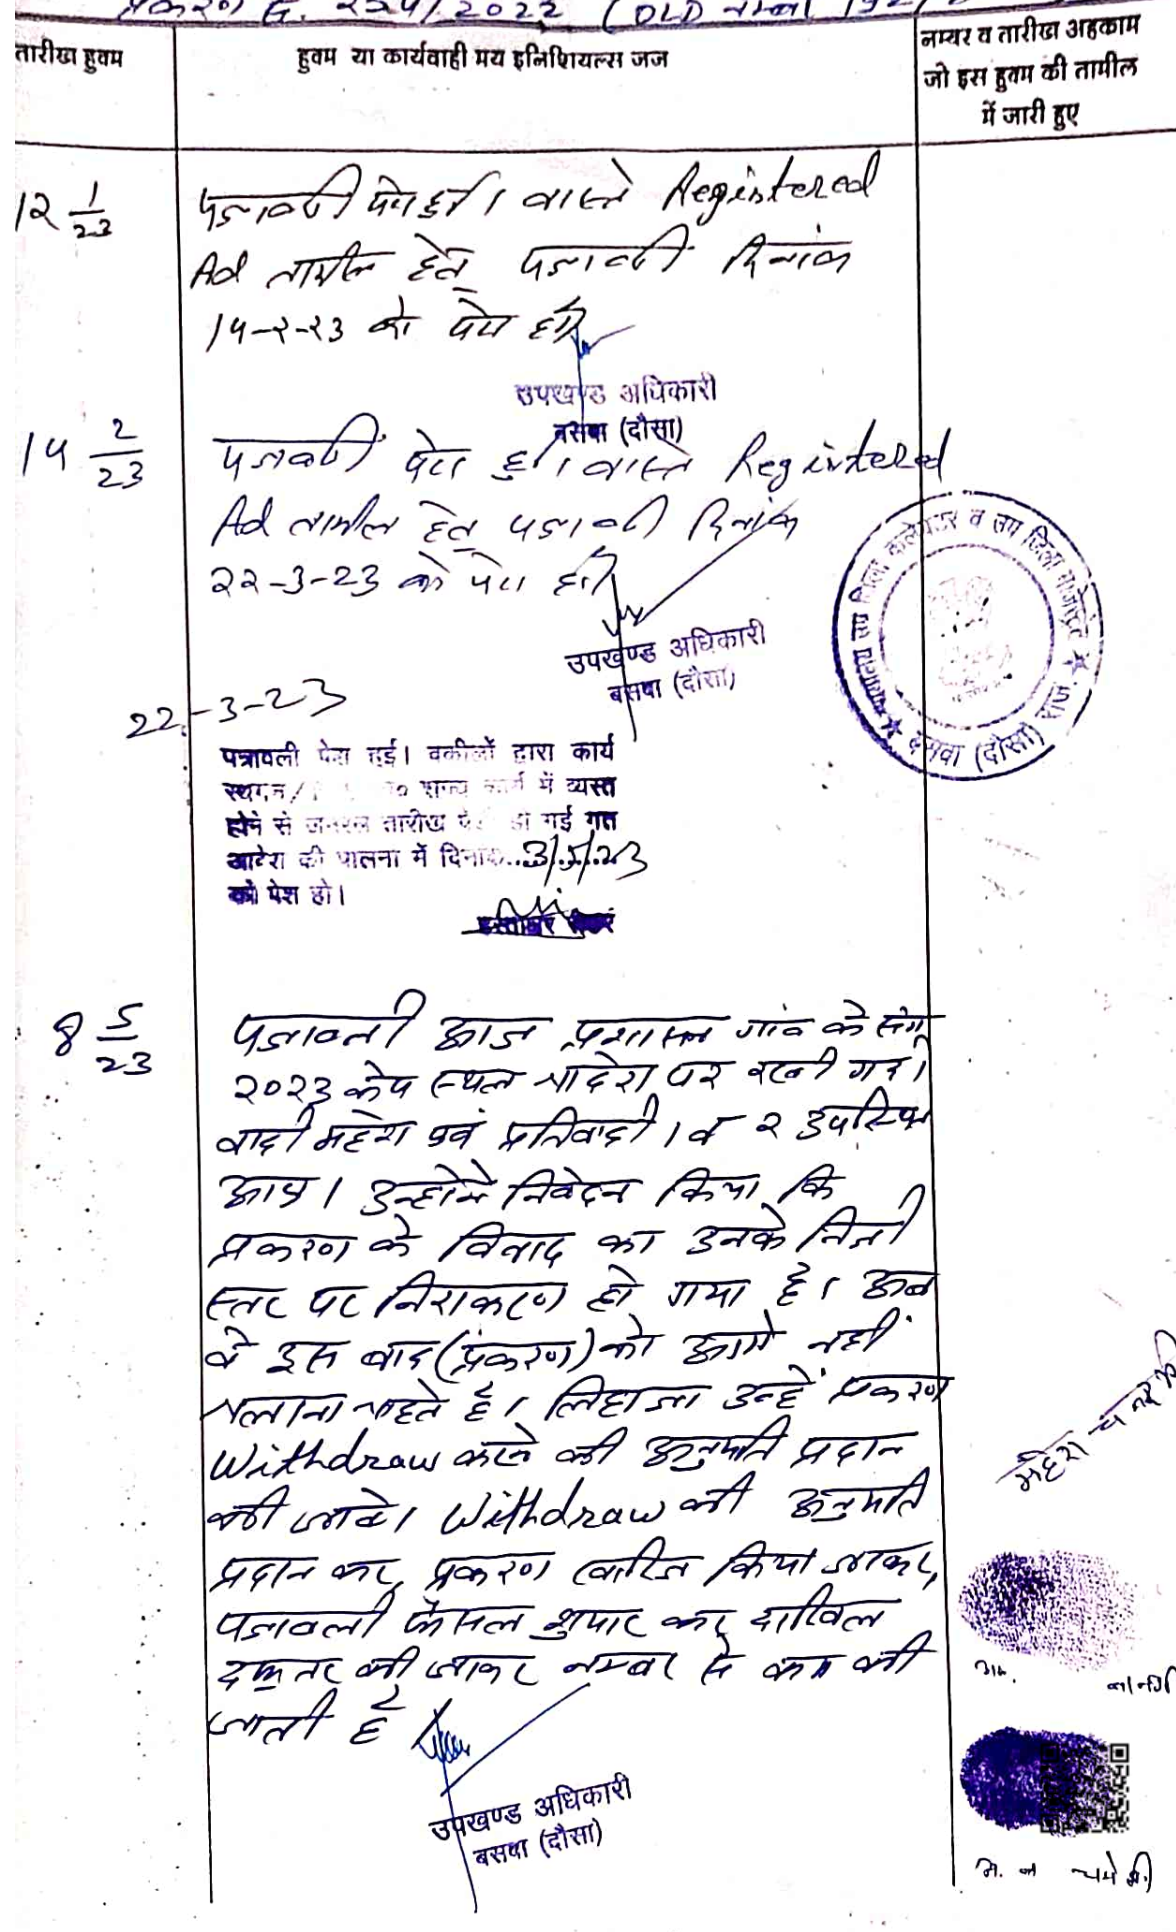 प्रकरण सं. 224/2022 (OLD नम्बर 192/
तारीख हुक्म
हुक्म या कार्यवाही मय इनिशियल्स जज
नम्बर व तारीख अहकाम
जो इस हुक्म की तामील
में जारी हुए
12 1/23
पत्रावली पेश हुई। वास्ते Registered
Ad तामील हेतु पत्रावली दिनांक
14-2-23 को पेश हो।
उपखण्ड अधिकारी
बसवा (दौसा)
14 2/23
पत्रावली पेश हुई। वास्ते Registered
Ad तामील हेतु पत्रावली दिनांक
22-3-23 को पेश हो।
उपखण्ड अधिकारी
बसवा (दौसा)
कलेक्टर व उप जिला मजिस्ट्रेट
बसवा (दौसा) राज.
22-3-23
पत्रावली पेश हुई। वकीलों द्वारा कार्य
स्थगन/ राज्य कार्य में व्यस्त
होने से जनरल तारीख दी गई गत
आदेश की पालना में दिनांक..3/5/23
को पेश हो।
8 5/23
पत्रावली आज प्रशासन गांव के संग
2023 केम्प स्थल आदेश पर रखी गई।
वादी महेश एवं प्रतिवादी 1 व 2 उपस्थित
आए। उन्होंने निवेदन किया कि
प्रकरण के विवाद का उनके निजी
स्तर पर निराकरण हो गया है। अब
वे इस वाद (प्रकरण) को आगे नहीं
चलाना चाहते है। लिहाजा उन्हें प्रकरण
Withdraw करने की अनुमति प्रदान
की जावे। Withdraw की अनुमति
प्रदान कर, प्रकरण खारिज किया जाकर,
पत्रावली फैसल शुमार कर दाखिल
दफ्तर की जाकर नम्बर से कम की
जाती है
उपखण्ड अधिकारी
बसवा (दौसा)
महेश चन्द